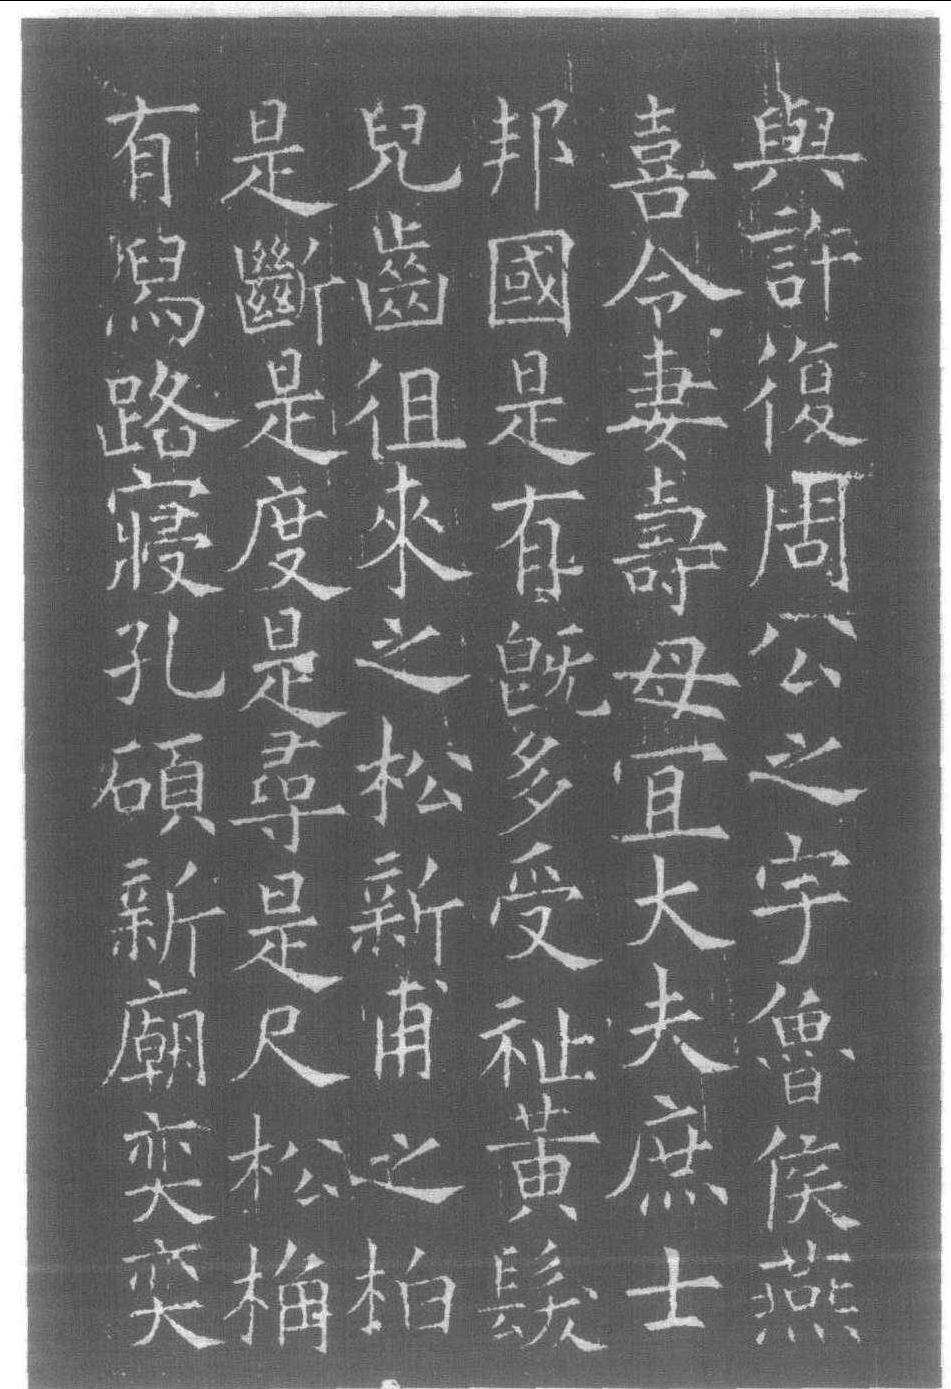 與許復周公之宇魯侯燕
喜令妻壽母宜大夫庶士
邦國是有既多受祉黃髮
兒齒徂來之松新甫之柏
是斷是度是尋是尺松桷
有舄路寢孔碩新廟奕奕